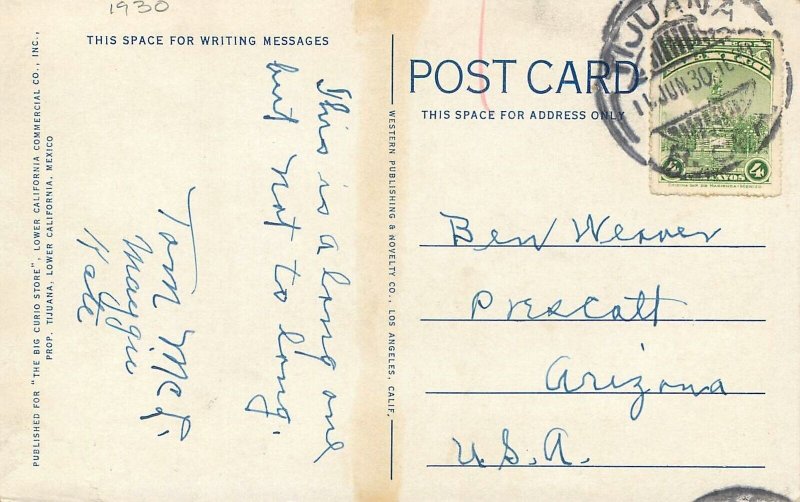 1930
THIS SPACE FOR WRITING MESSAGES
This is along one
but not to long.
Tom Mc F.
Maggie
Kate
PUBLISHED FOR "THE BIG CURIO STORE", LOWER CALIFORNIA COMMERCIAL CO., INC.,
PROP. TIJUANA, LOWER CALIFORNIA, MEXICO
WESTERN PUBLISHING & NOVELTY CO., LOS ANGELES, CALIF.
POST CARD
THIS SPACE FOR ADDRESS ONLY
TIJUANA
11.JUN.30.
4
CENTAVOS
4
OFICINA IMP. DE HACIENDA-MEXICO
Ben Weaver
Prescott
Arizona
U.S.A.